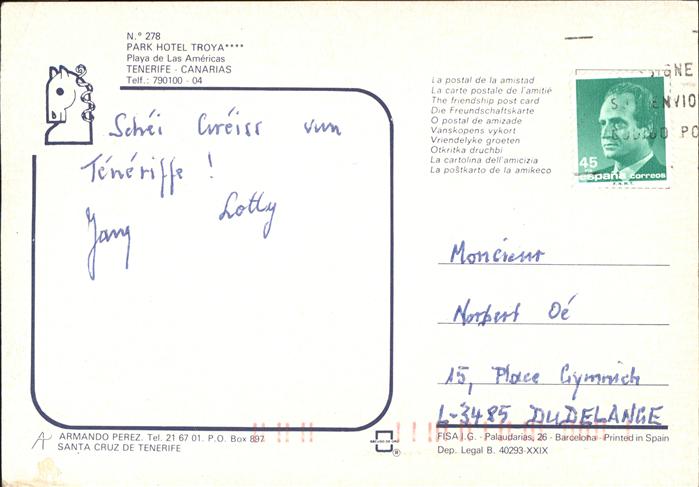 N.° 278
PARK HOTEL TROYA****
Playa de Las Américas
TENERIFE - CANARIAS
Telf.: 790100 - 04
Schéi Gréiss vun
Ténériffe !
Lotty
Jang
La postal de la amistad
La carte postale de l'amitié
The friendship post card
Die Freundschaftskarte
O postal de amizade
Vanskopens vykort
Vriendelyke groeten
Otkritka druchbi
La cartolina dell'amicizia
La poštkarto de la amikeco
45
españa correos
F.N.M.T.
ENVIO
PO
Moncieur
Norbert Oé
15, Place Gymnich
L-3485 DUDELANGE
ARMANDO PEREZ. Tel. 21 67 01. P.O. Box 897
SANTA CRUZ DE TENERIFE
FISA I.G. - Palaudarias, 26 - Barcelona - Printed in Spain
Dep. Legal B. 40293-XXIX